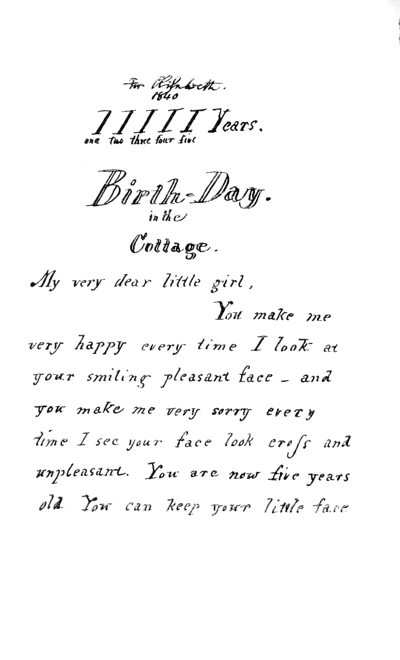 For Elizabeth.
1840
IIIII Years.
one two three four five
Birth=Day.
in the
Cottage.
My very dear little girl,
You make me
very happy every time I look at
your smiling pleasant face – and
you make me very sorry every
time I see your face look croſs and
unpleasant. You are now five years
old You can keep your little face